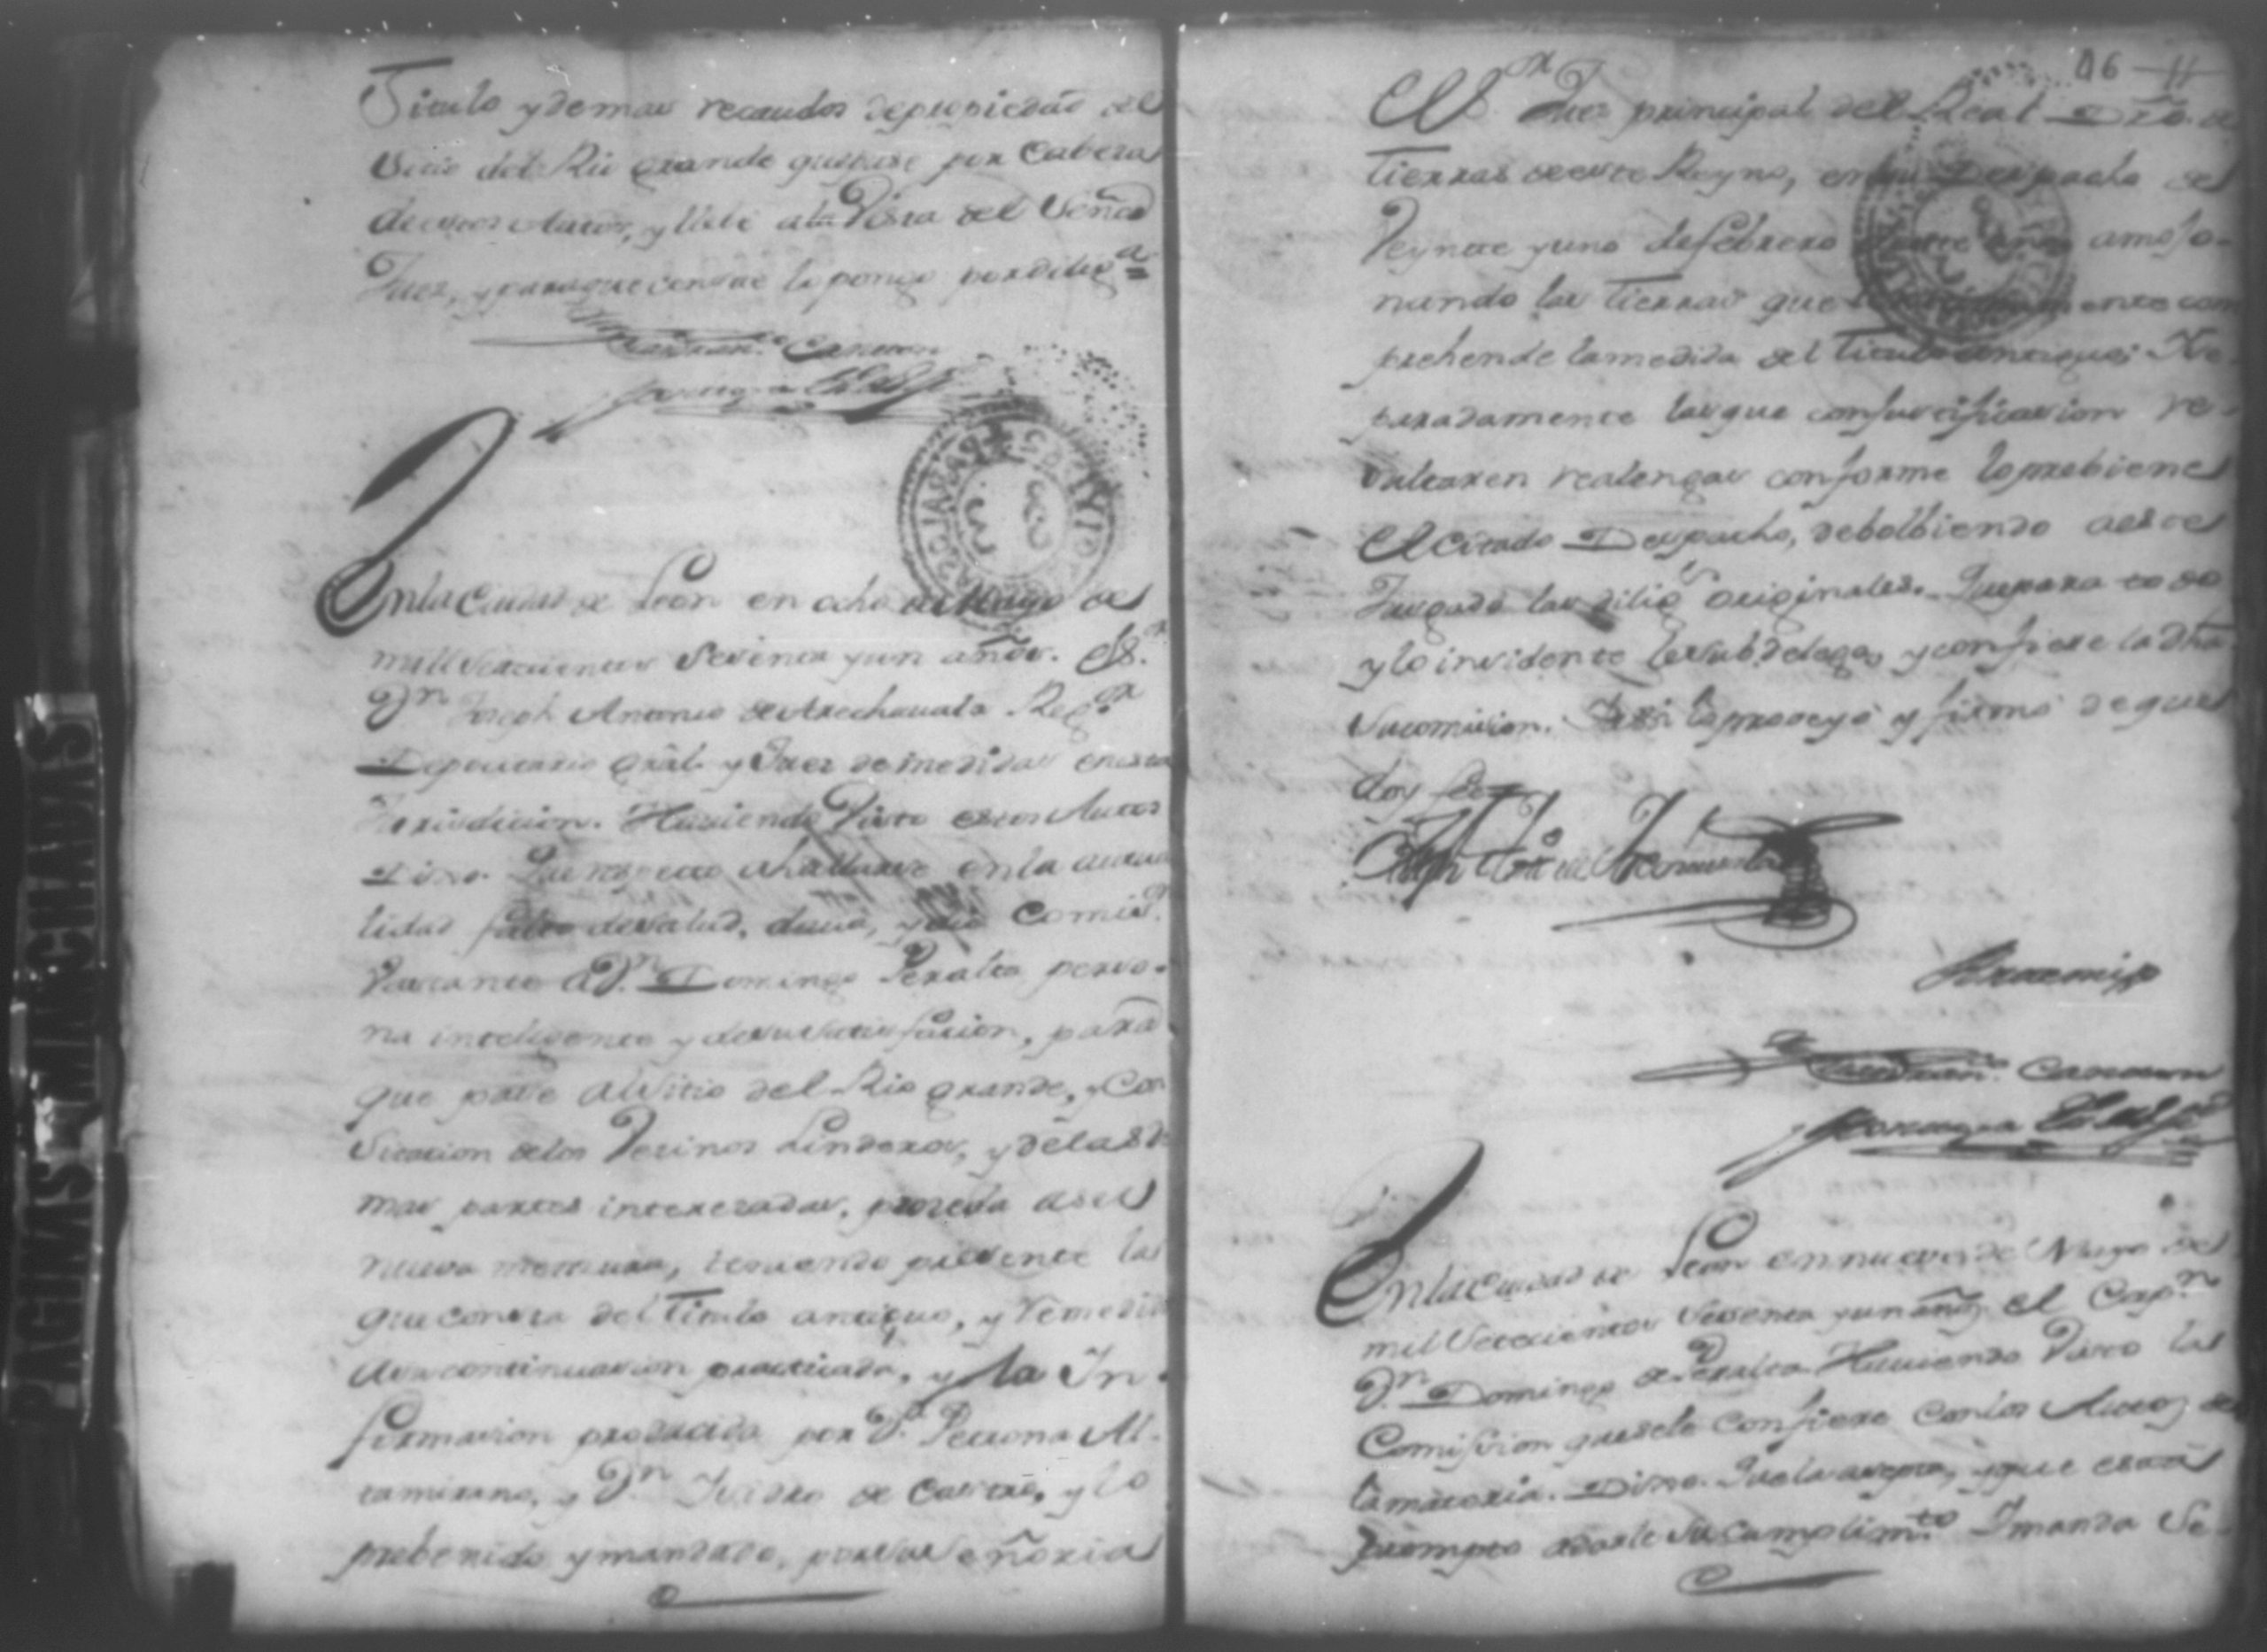 Titulo y demas recaudos de propiedad del
Sitio del Rio grande que esta por Cabeza
de estos Autos, y llebé ala Vista del Señor
Juez, y para que conste lo pongo por dilig.a =
En la Ciudad de Leon en ocho de Mayo de
mill setecientos sesenta y un años. El S.or
D.n Joseph Antonio de Arechavala Reg.or
Depocitario Gral. y Juez de medidas en esta
Jurisdicion. Haviendo Visto estos Autos
Dixo. Que respecto ahallarse en la actua
lidad falto de salud, dava, y dió Comis.n
Vastante a D.n Domingo Peralta perso-
na inteligente y de su satisfacion, para
que pase al Sitio del Rio grande, y con
Sitacion de los Vecinos Linderos, y de las de
mas partes interezadas, proceda asu
nueva mensura, teniendo presente la
que consta del Titulo antiguo, y remedida
asu continuacion practicada, y la In-
formacion producida por D.a Petrona Al-
tamirano, y D.n Isidro de Castro, y lo
prebenido y mandado, por su señoria
06 11
El S.or Juez principal del Real Dro. de
Tierras de este Reyno, en su Despacho de
Veynte y uno de febrero de este año amojo-
nando las Tierras que com
prehende la medida del Titulo antiguo; Se-
paradamente las que con justificacion re-
sultaren realengas conforme lo prebiene
el citado Despacho, debolbiendo a este
Jusgado las dilig.s originales. Que para todo
y lo insidente le subdelega, y confiere la dha
su comision. Assi lo proveyó y firmó de que
doy fee =
Joseph Ant.o de Arechavala
Ante mi
En la Ciudad de Leon en nueve de Mayo de
mil Setecientos sesenta y un años el Cap.n
D.n Domingo de Peralta Haviendo Visto la
Comission que se le confiere con los Autos de
la materia. Dixo. Que la acepta, y que está
prompto a darle su cumplim.to Y manda Se-